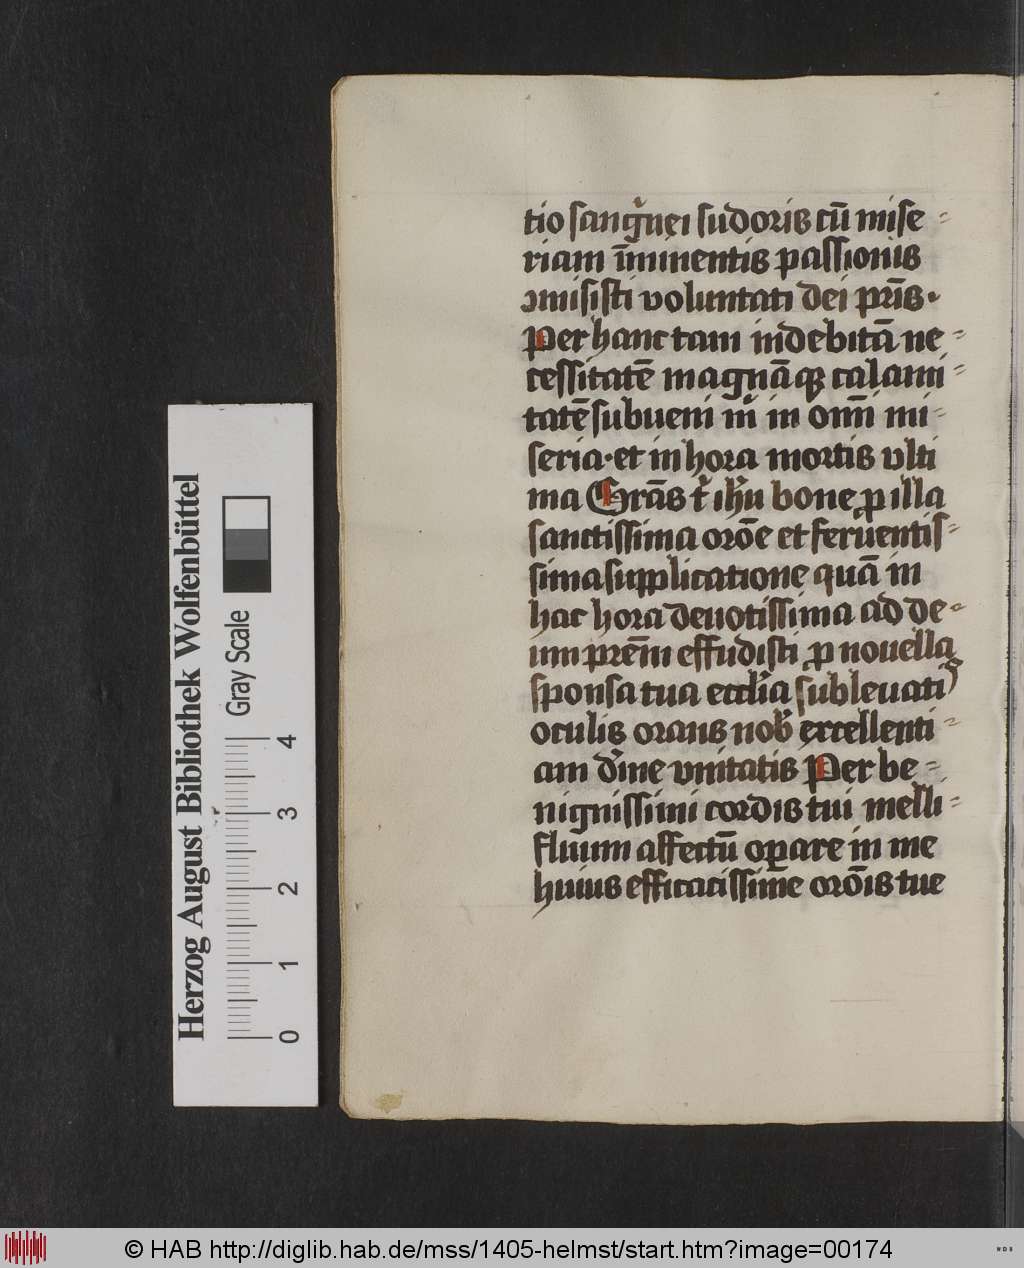 tio sangͥnei sudoris cū mise⸗
riam īminentis passionis
ꝯmisisti voluntati dei pr̄is·
Per hanc tam indebitā ne⸗
cessitatē magnāqꝫ calami⸗
tatē subueni m̄ in om̄i mi⸗
seria·et in hora mortis vlti
ma Grās tͥ ihͫu bone ꝑ illa
sanctissima orōe et feruentis⸗
sima supplicatione quā in
hac hora deuotissima ad de⸗
um prēm effudisti ꝑ nouella
sponsa tua eccl̄ia subleuatis
oculis orans nob̄ excellenti⸗
am d̄ine vnitatis Per be⸗
nignissimi cordis tui melli⸗
fluum affectū oꝑare in me
huius efficacissime orōis tue
Herzog August Bibliothek Wolfenbüttel
Gray Scale
0 1 2 3 4
© HAB http://diglib.hab.de/mss/1405-helmst/start.htm?image=00174